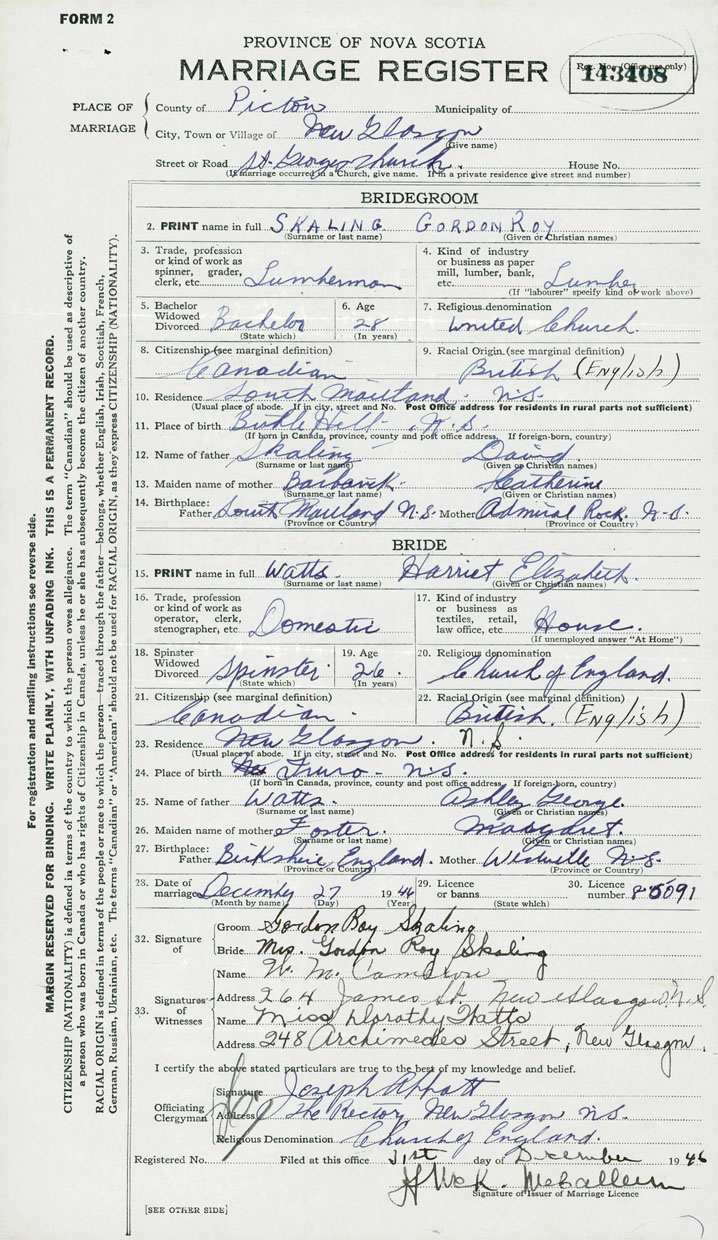 FORM 2
PROVINCE OF NOVA SCOTIA
MARRIAGE REGISTER
Reg. No. (Office use only)
143408
PLACE OF MARRIAGE
County of Pictou Municipality of
City, Town or Village of New Glasgow
(Give name)
Street or Road St. Georges Church. House No.
(If marriage occurred in a Church, give name. If in a private residence give street and number)
BRIDEGROOM
2. PRINT name in full SKALING GORDON ROY
(Surname or last name) (Given or Christian names)
3. Trade, profession or kind of work as spinner, grader, clerk, etc. Lumberman
4. Kind of industry or business as paper mill, lumber, bank, etc. Lumber
(If "labourer" specify kind of work above)
5. Bachelor Widowed Divorced Bachelor
(State which)
6. Age 28
(In years)
7. Religious denomination United Church.
8. Citizenship (see marginal definition) Canadian
9. Racial Origin (see marginal definition) British (English)
10. Residence South Maitland N.S.
(Usual place of abode. If in city, street and No. Post Office address for residents in rural parts not sufficient)
11. Place of birth Hill N.S.
(If born in Canada, province, county and post office address. If foreign-born, country)
12. Name of father Skaling David
(Surname or last name) (Given or Christian names)
13. Maiden name of mother Catherine
(Surname or last name) (Given or Christian names)
14. Birthplace: Father South Maitland N.S. Mother Admiral Rock N.S.
(Province or Country) (Province or Country)
BRIDE
15. PRINT name in full Watts. Harriet Elizabeth.
(Surname or last name) (Given or Christian names)
16. Trade, profession or kind of work as operator, clerk, stenographer, etc Domestic
17. Kind of industry or business as textiles, retail, law office, etc. House.
(If unemployed answer "At Home")
18. Spinster Widowed Divorced Spinster
(State which)
19. Age 26.
(In years)
20. Religious denomination Church of England.
21. Citizenship (see marginal definition) Canadian.
22. Racial Origin (see marginal definition) British. (English)
23. Residence New Glasgow. N.S.
(Usual place of abode. If in city, street and No. Post Office address for residents in rural parts not sufficient)
24. Place of birth Truro - N.S.
(If born in Canada, province, county and post office address. If foreign-born, country)
25. Name of father Watts. Ashley George.
(Surname or last name) (Given or Christian names)
26. Maiden name of mother Foster. Margaret.
(Surname or last name) (Given or Christian names)
27. Birthplace: Father Birkshire England. Mother Westville N.S.
(Province or Country) (Province or Country)
28. Date of marriage December 27 1946
(Month by name) (Day) (Year)
29. Licence or banns
(State which)
30. Licence number 85091
32. Signature of
Groom Gordon Roy Skaling
Bride Mrs. Gordon Roy Skaling
33. Signatures of Witnesses
Name W. M. Cameron
Address 264 James St. New Glasgow N.S.
Name Miss Dorothy Watts
Address 248 Archimedes Street, New Glasgow.
I certify the above stated particulars are true to the best of my knowledge and belief.
Officiating Clergyman
Signature Joseph Abbott
Address The Rectory New Glasgow N.S.
Religious Denomination Church of England.
Registered No. Filed at this office 31st day of December 1946
Signature of Issuer of Marriage Licence
[SEE OTHER SIDE]
For registration and mailing instructions see reverse side.
MARGIN RESERVED FOR BINDING. WRITE PLAINLY, WITH UNFADING INK. THIS IS A PERMANENT RECORD.
CITIZENSHIP (NATIONALITY) is defined in terms of the country to which the person owes allegiance. The term "Canadian" should be used as descriptive of
a person who was born in Canada or who has rights of Citizenship in Canada, unless he or she has subsequently become the citizen of another country.
RACIAL ORIGIN is defined in terms of the people or race to which the person—traced through the father—belongs, whether English, Irish, Scottish, French,
German, Russian, Ukrainian, etc. The terms "Canadian" or "American" should not be used for RACIAL ORIGIN, as they express CITIZENSHIP (NATIONALITY).